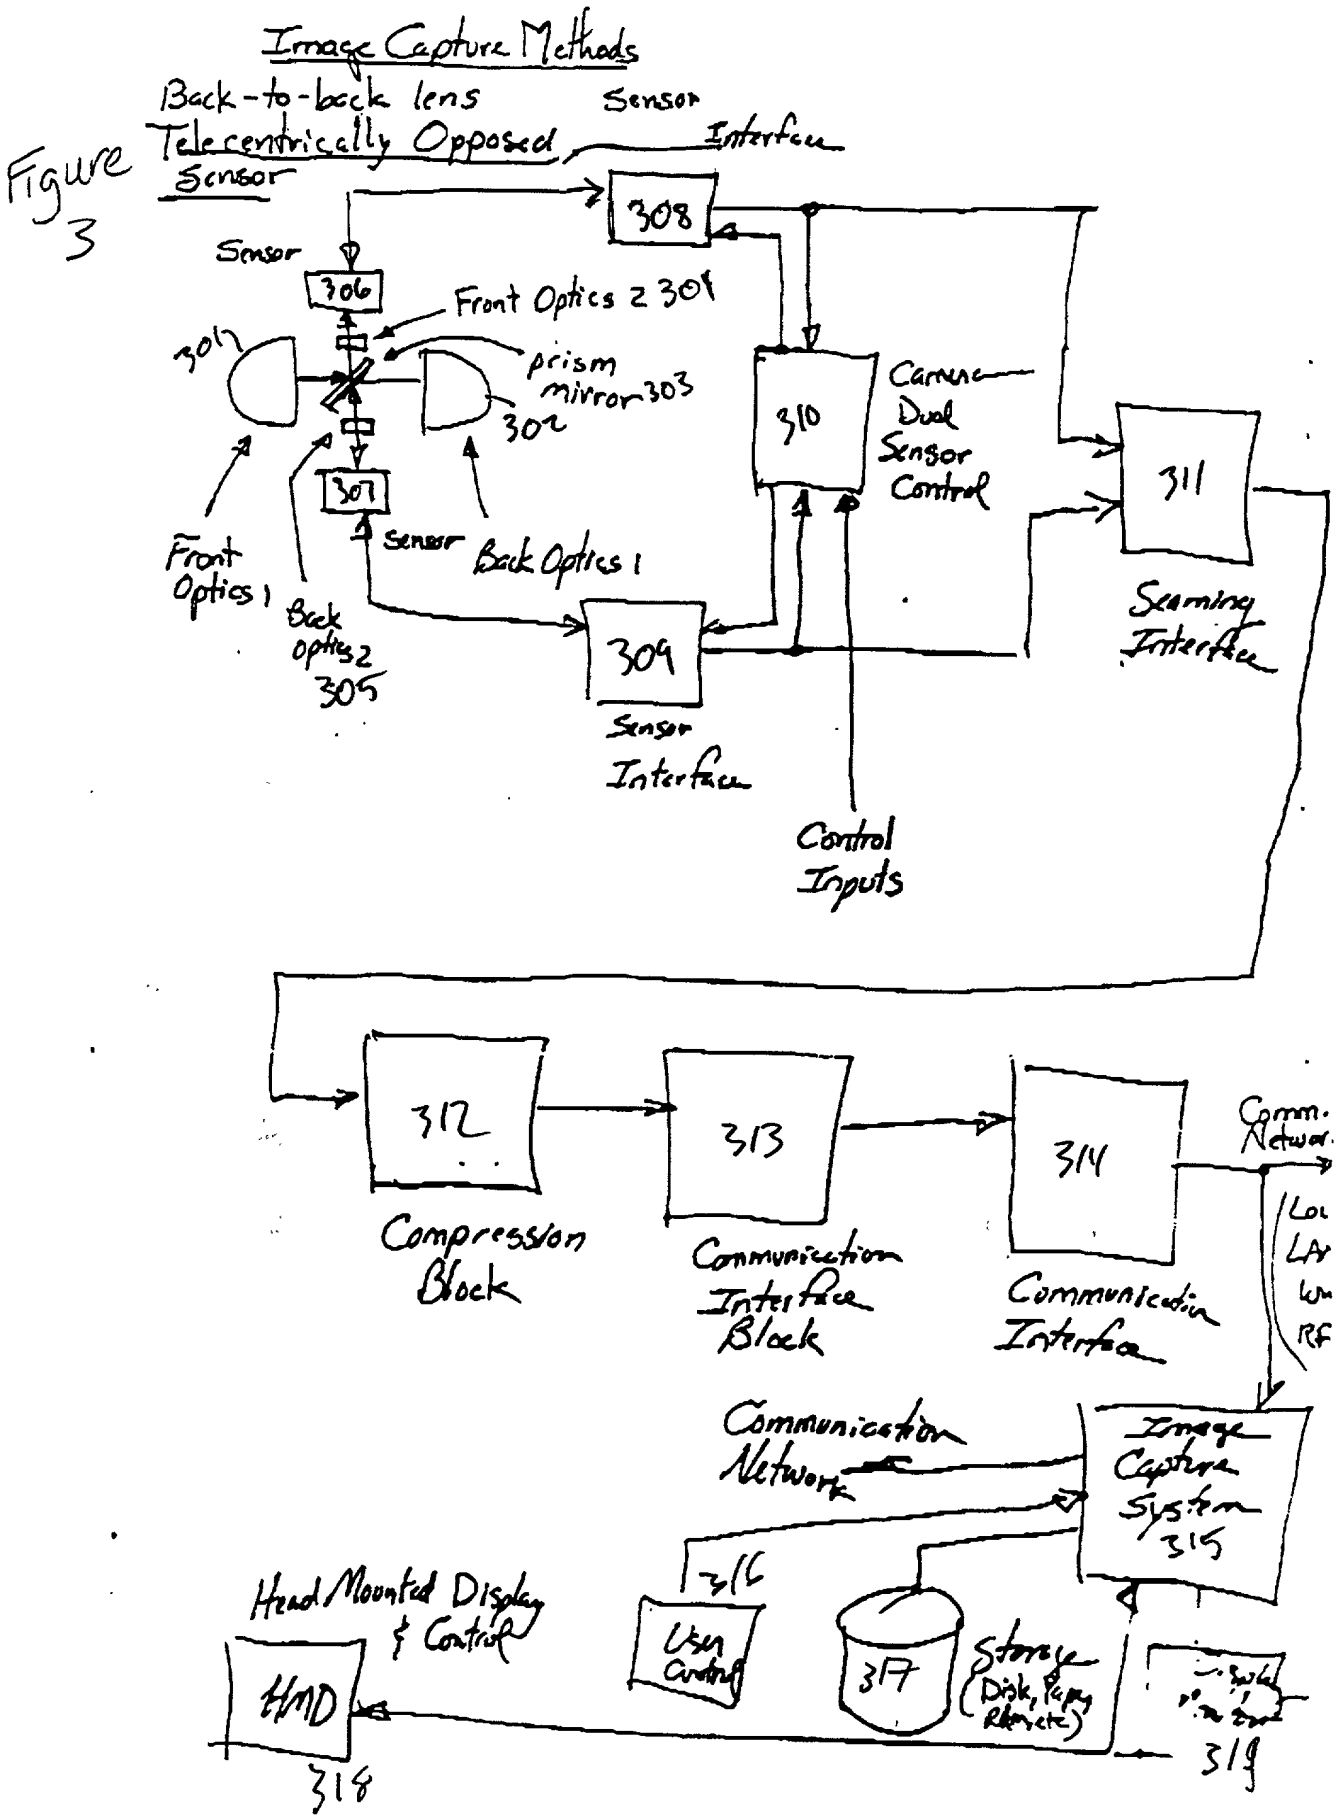 Image Capture Methods
Back-to-back lens
Telecentrically Opposed
Sensor
Figure
3
Sensor
Interface
308
Sensor
306
Front Optics 2 304
301
prism
mirror 303
302
307
Sensor
Front
Optics 1
Back
optics 2
305
Back Optics 1
310
Camera
Dual
Sensor
Control
311
Seaming
Interface
309
Sensor
Interface
Control
Inputs
312
Compression
Block
313
Communication
Interface
Block
314
Communication
Interface
Comm.
RF
Communication
Network
Image
Capture
System
315
316
User
Control
317
Storage
(Disk,
Head Mounted Display
& Control
HMD
318
319